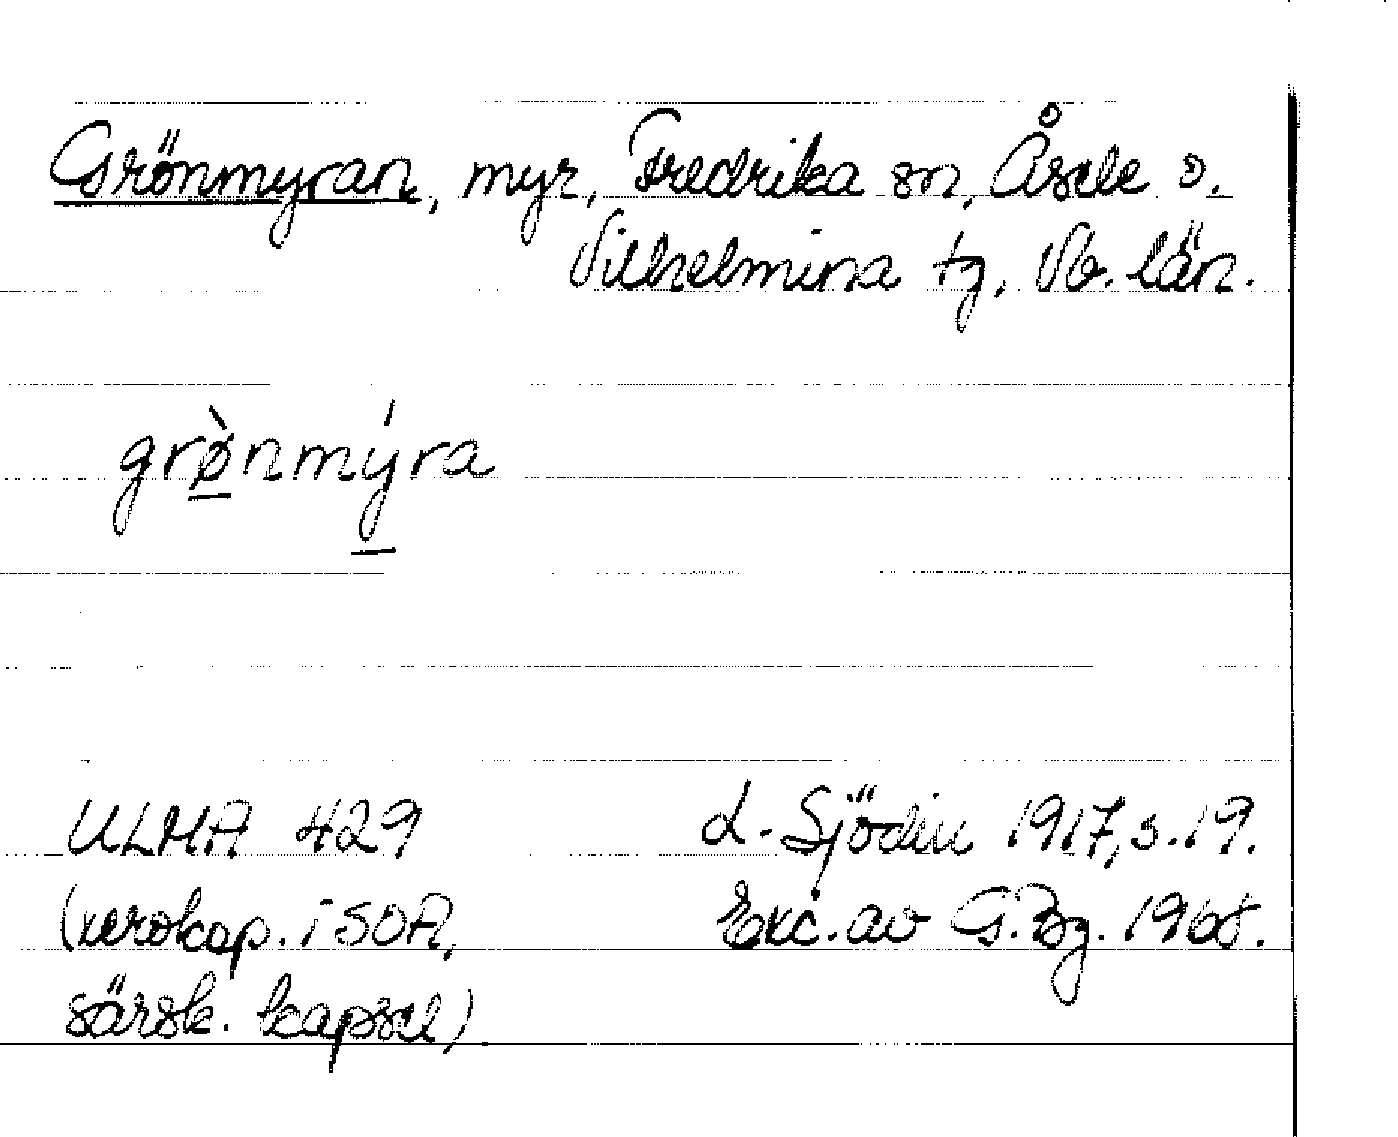 Grönmyran, myr, Fredrika sn, Åsele o.
Vilhelmina tg, Vb. län.
grø̠̀nmý̠ra
ULMA 429
(xerokop. i SOA,
särsk. kapsel)
L. Sjödin 1917, s. 19.
Exc. av G. Bg. 1968.